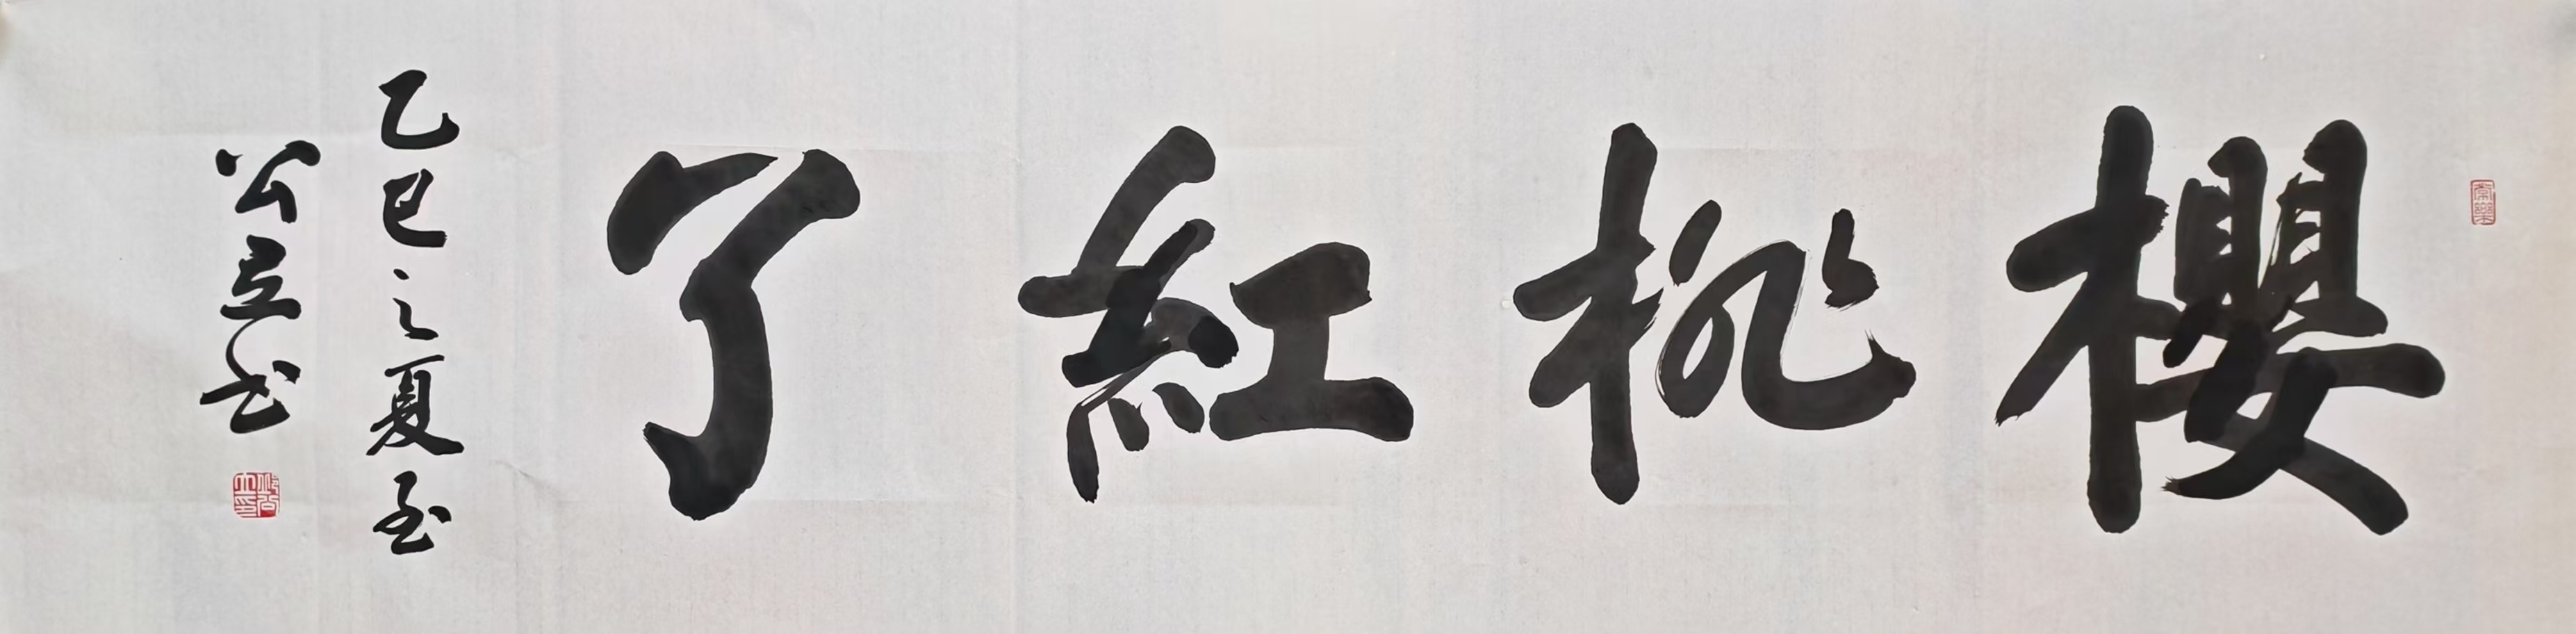 櫻桃紅了
乙巳之夏至
公立书